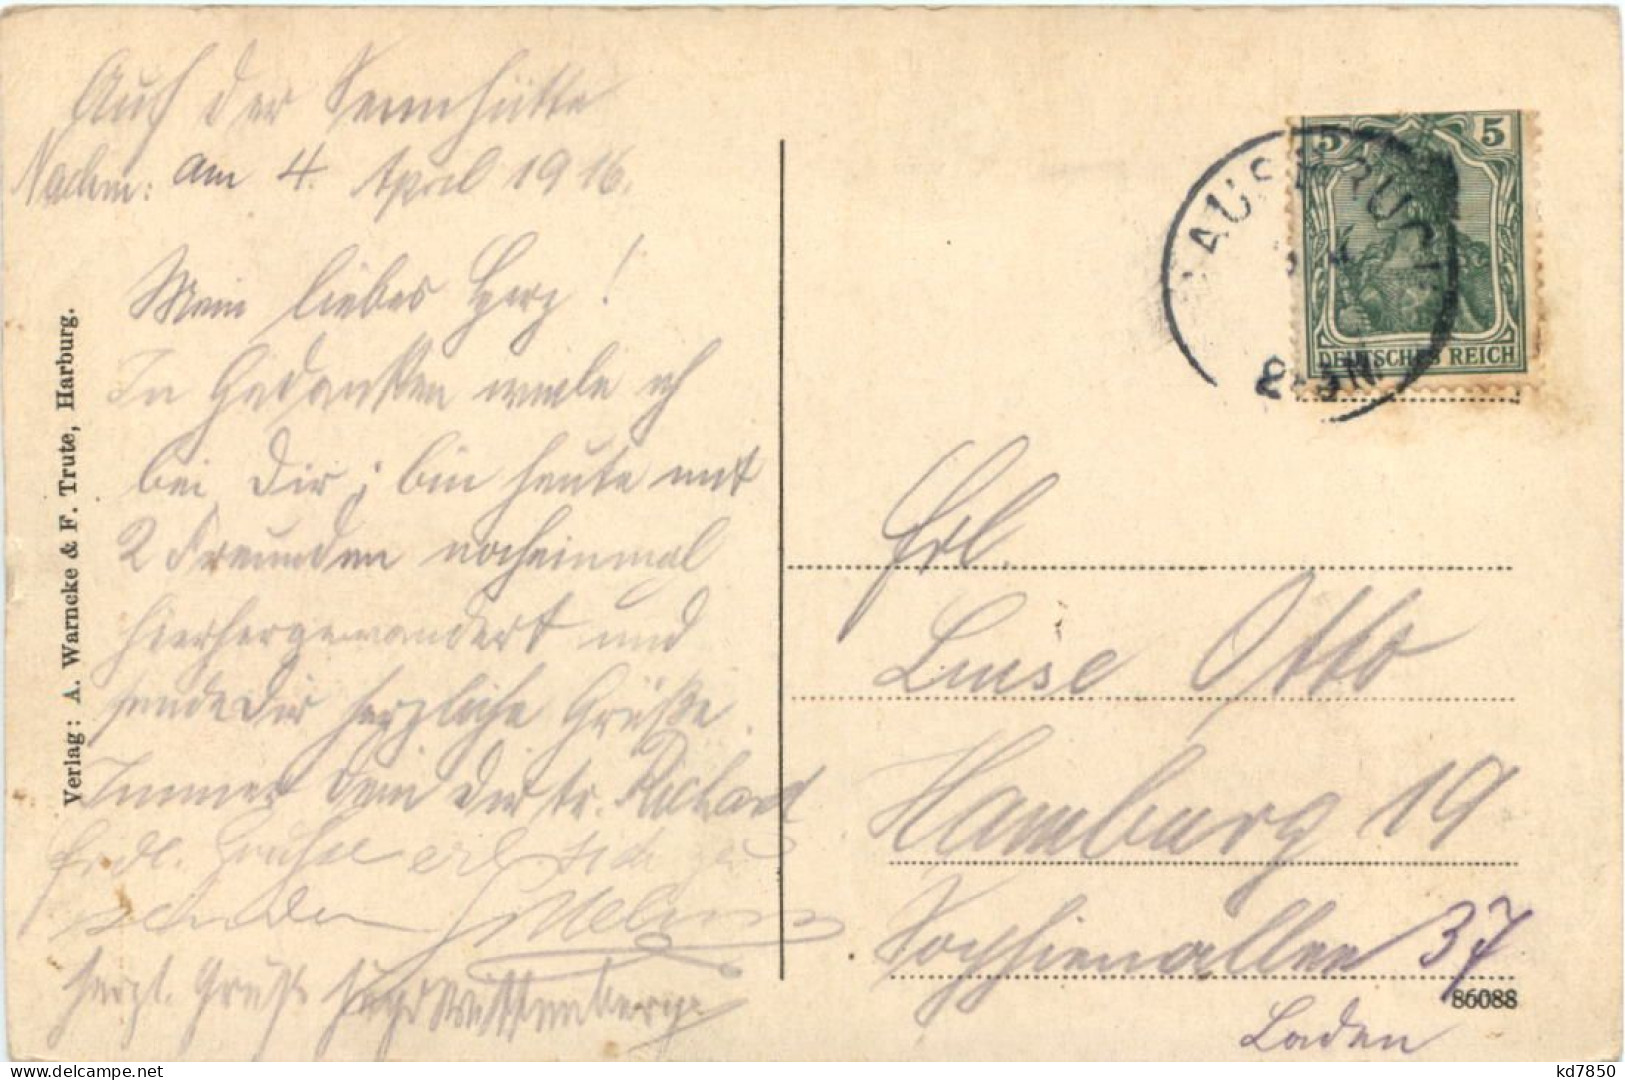 Auf der Sennhütte
Nachm: am 4. April 1916.
Mein liebes Herz!
In Gedanken weile ich
bei Dir; bin heute mit
2 Freunden nocheinmal
hierhergewandert und
sende Dir herzliche Grüße.
Immer Dein Dir tr. Richard
frdl. Grüße erl. sich zu
senden
herzl. Gruß Wittenberg.
Verlag: A. Warncke & F. Trute, Harburg.
HAUSBRUCH
8-9N
5 5
DEUTSCHES REICH
Frl.
Luise Otto
Hamburg 19
Sophienallee 37
86088
Laden
kd7850